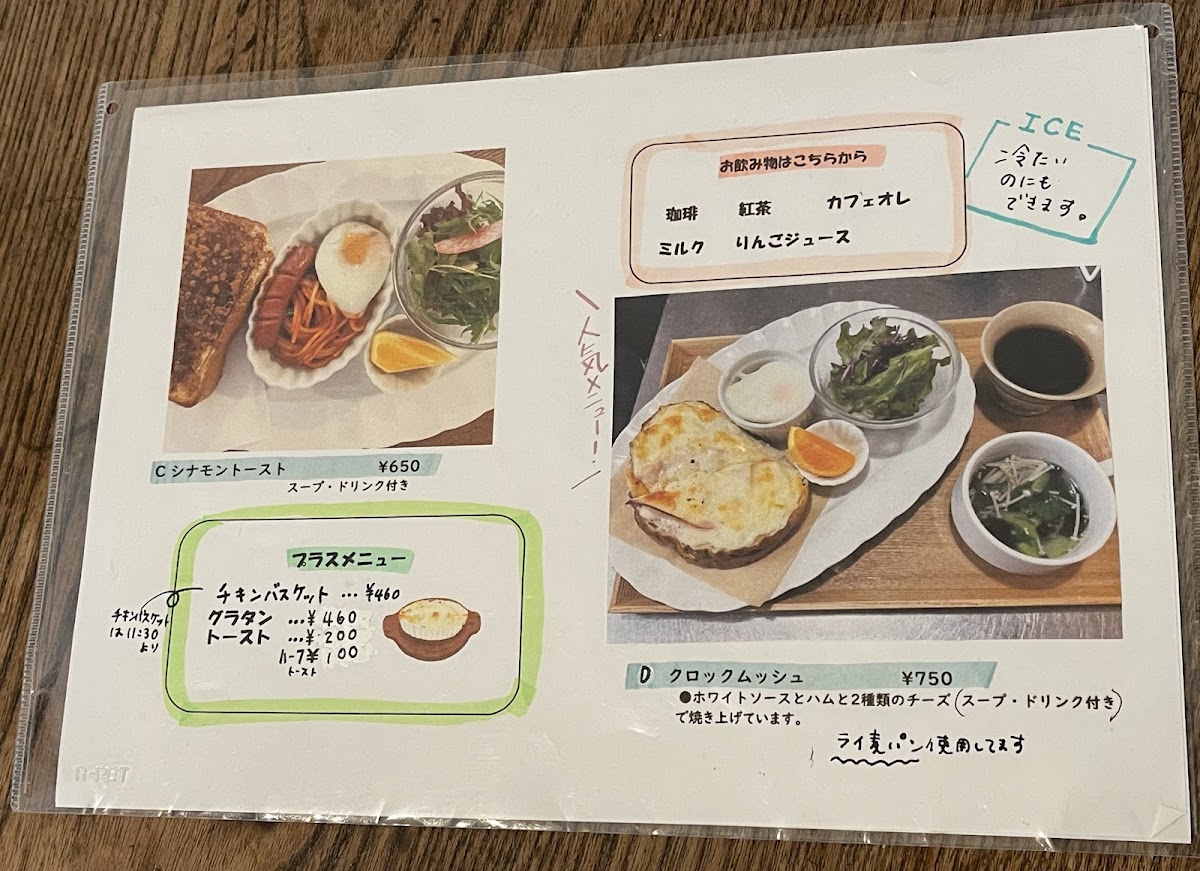 C シナモントースト ¥650
スープ・ドリンク付き
プラスメニュー
チキンバスケット … ¥460
グラタン …¥ 460
トースト …¥ 200
ハーフ¥ 100
トースト
チキンバスケット
は11:30
より
お飲み物はこちらから
珈琲 紅茶 カフェオレ
ミルク りんごジュース
ICE
冷たい
のにも
できます。
\人気メニュー!/
D クロックムッシュ ¥750
●ホワイトソースとハムと2種類のチーズ(スープ・ドリンク付き)
で焼き上げています。
ライ麦パン使用してます
R-PET